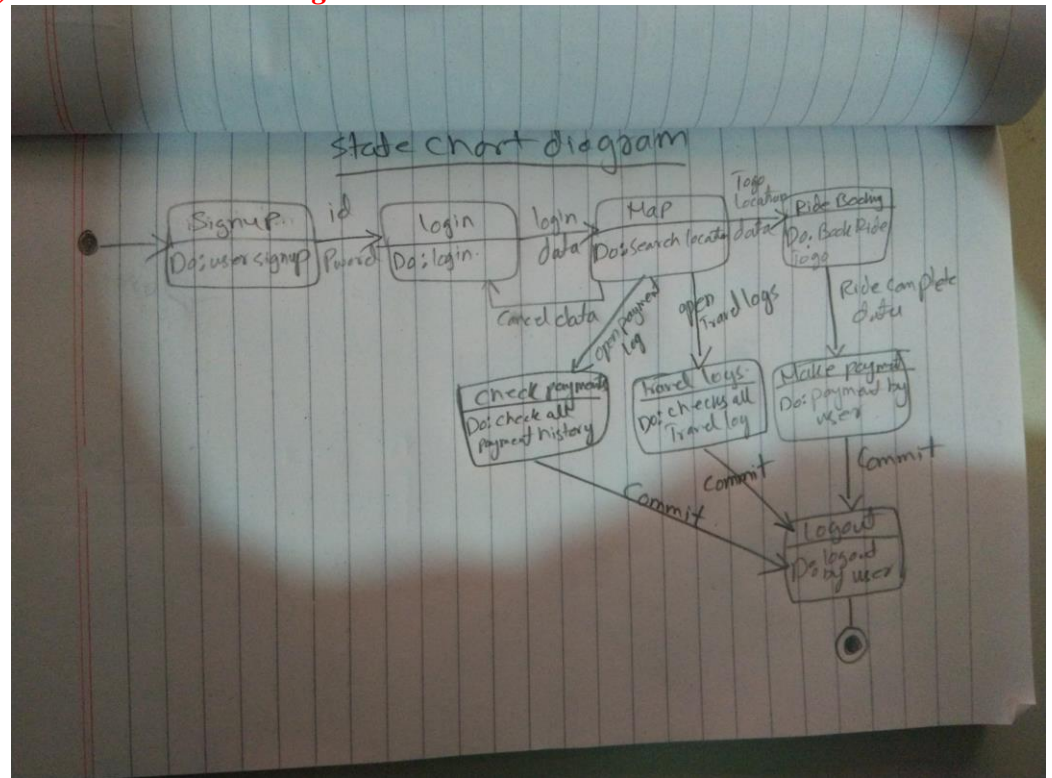 state chart diagram
Signup
Do: user signup
id
login
Do: login.
login
data
Map
Do: search locatn
Togo
Location
data
Ride Booking
Do: Book Ride
Togo
Cancel data
open payment
log
open
Travel logs
Ride complete
data
check payments
Do: check all
payment history
Travel logs.
Do: checks all
Travel log
Make payment
Do: payment by
user
Commit
Commit
Commit
Logout
Do: logout
by user